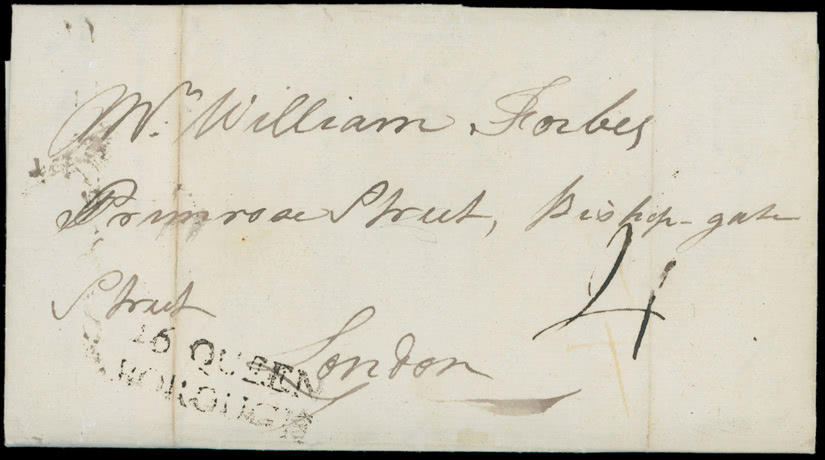 Mr. William Forbes
Primrose Street, Bishop-gate
Street
4
London
46 QUEEN
BOROUGH